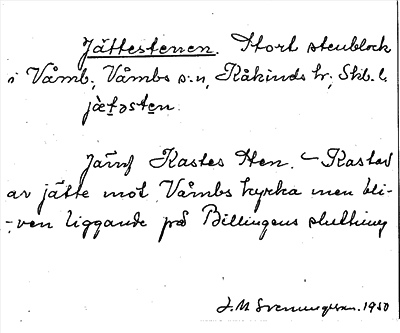 Jättestenen. Stort stenblock
i Våmb, Våmbs s:n, Kåkinds hr; Skb. l.
jæt̯əste̯n.
Jämf Kastes Sten. – Kastad
av jätte mot Våmbs kyrka men bli-
-ven liggande på Billingens sluttning
J. M Svenningsson. 1950